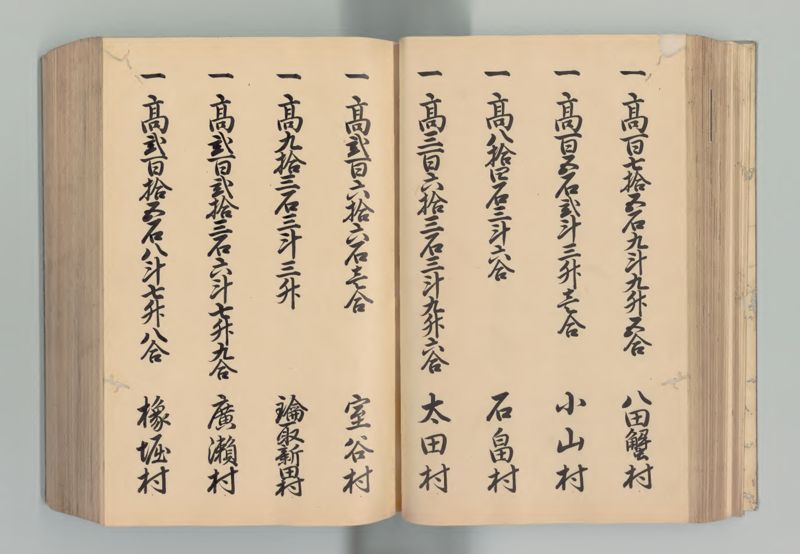 一 高百七拾五石九斗九升五合 八田蟹村
一 高百五石弐斗三升壱合 小山村
一 高八拾四石三斗六合 石畠村
一 高三百六拾三石三斗九升六合 太田村
一 高弐百六拾六石壱合 室谷村
一 高九拾三石三斗三升 取新田村
一 高弐百弐拾三石六斗七升九合 廣瀬村
一 高弐百拾五石八斗七升八合 橡堀村